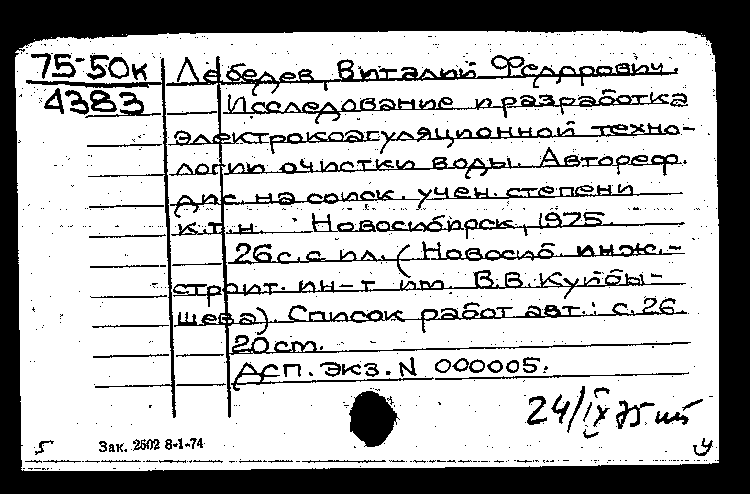 75-50к Лебедев, Виталий Федорович.
4383 Исследование и разработка
электрокоагуляционной техно-
логии очистки воды. Автореф.
дис. на соиск. учен. степени
к.т.н. Новосибирск, 1975.
26с. с ил. (Новосиб. инж.-
строит. ин-т им. В.В. Куйбы-
шева). Список работ авт.: с. 26.
20 см.
Дсп. Экз. N 000005.
24/IX 75
5 Зак. 2502 8-1-74 У